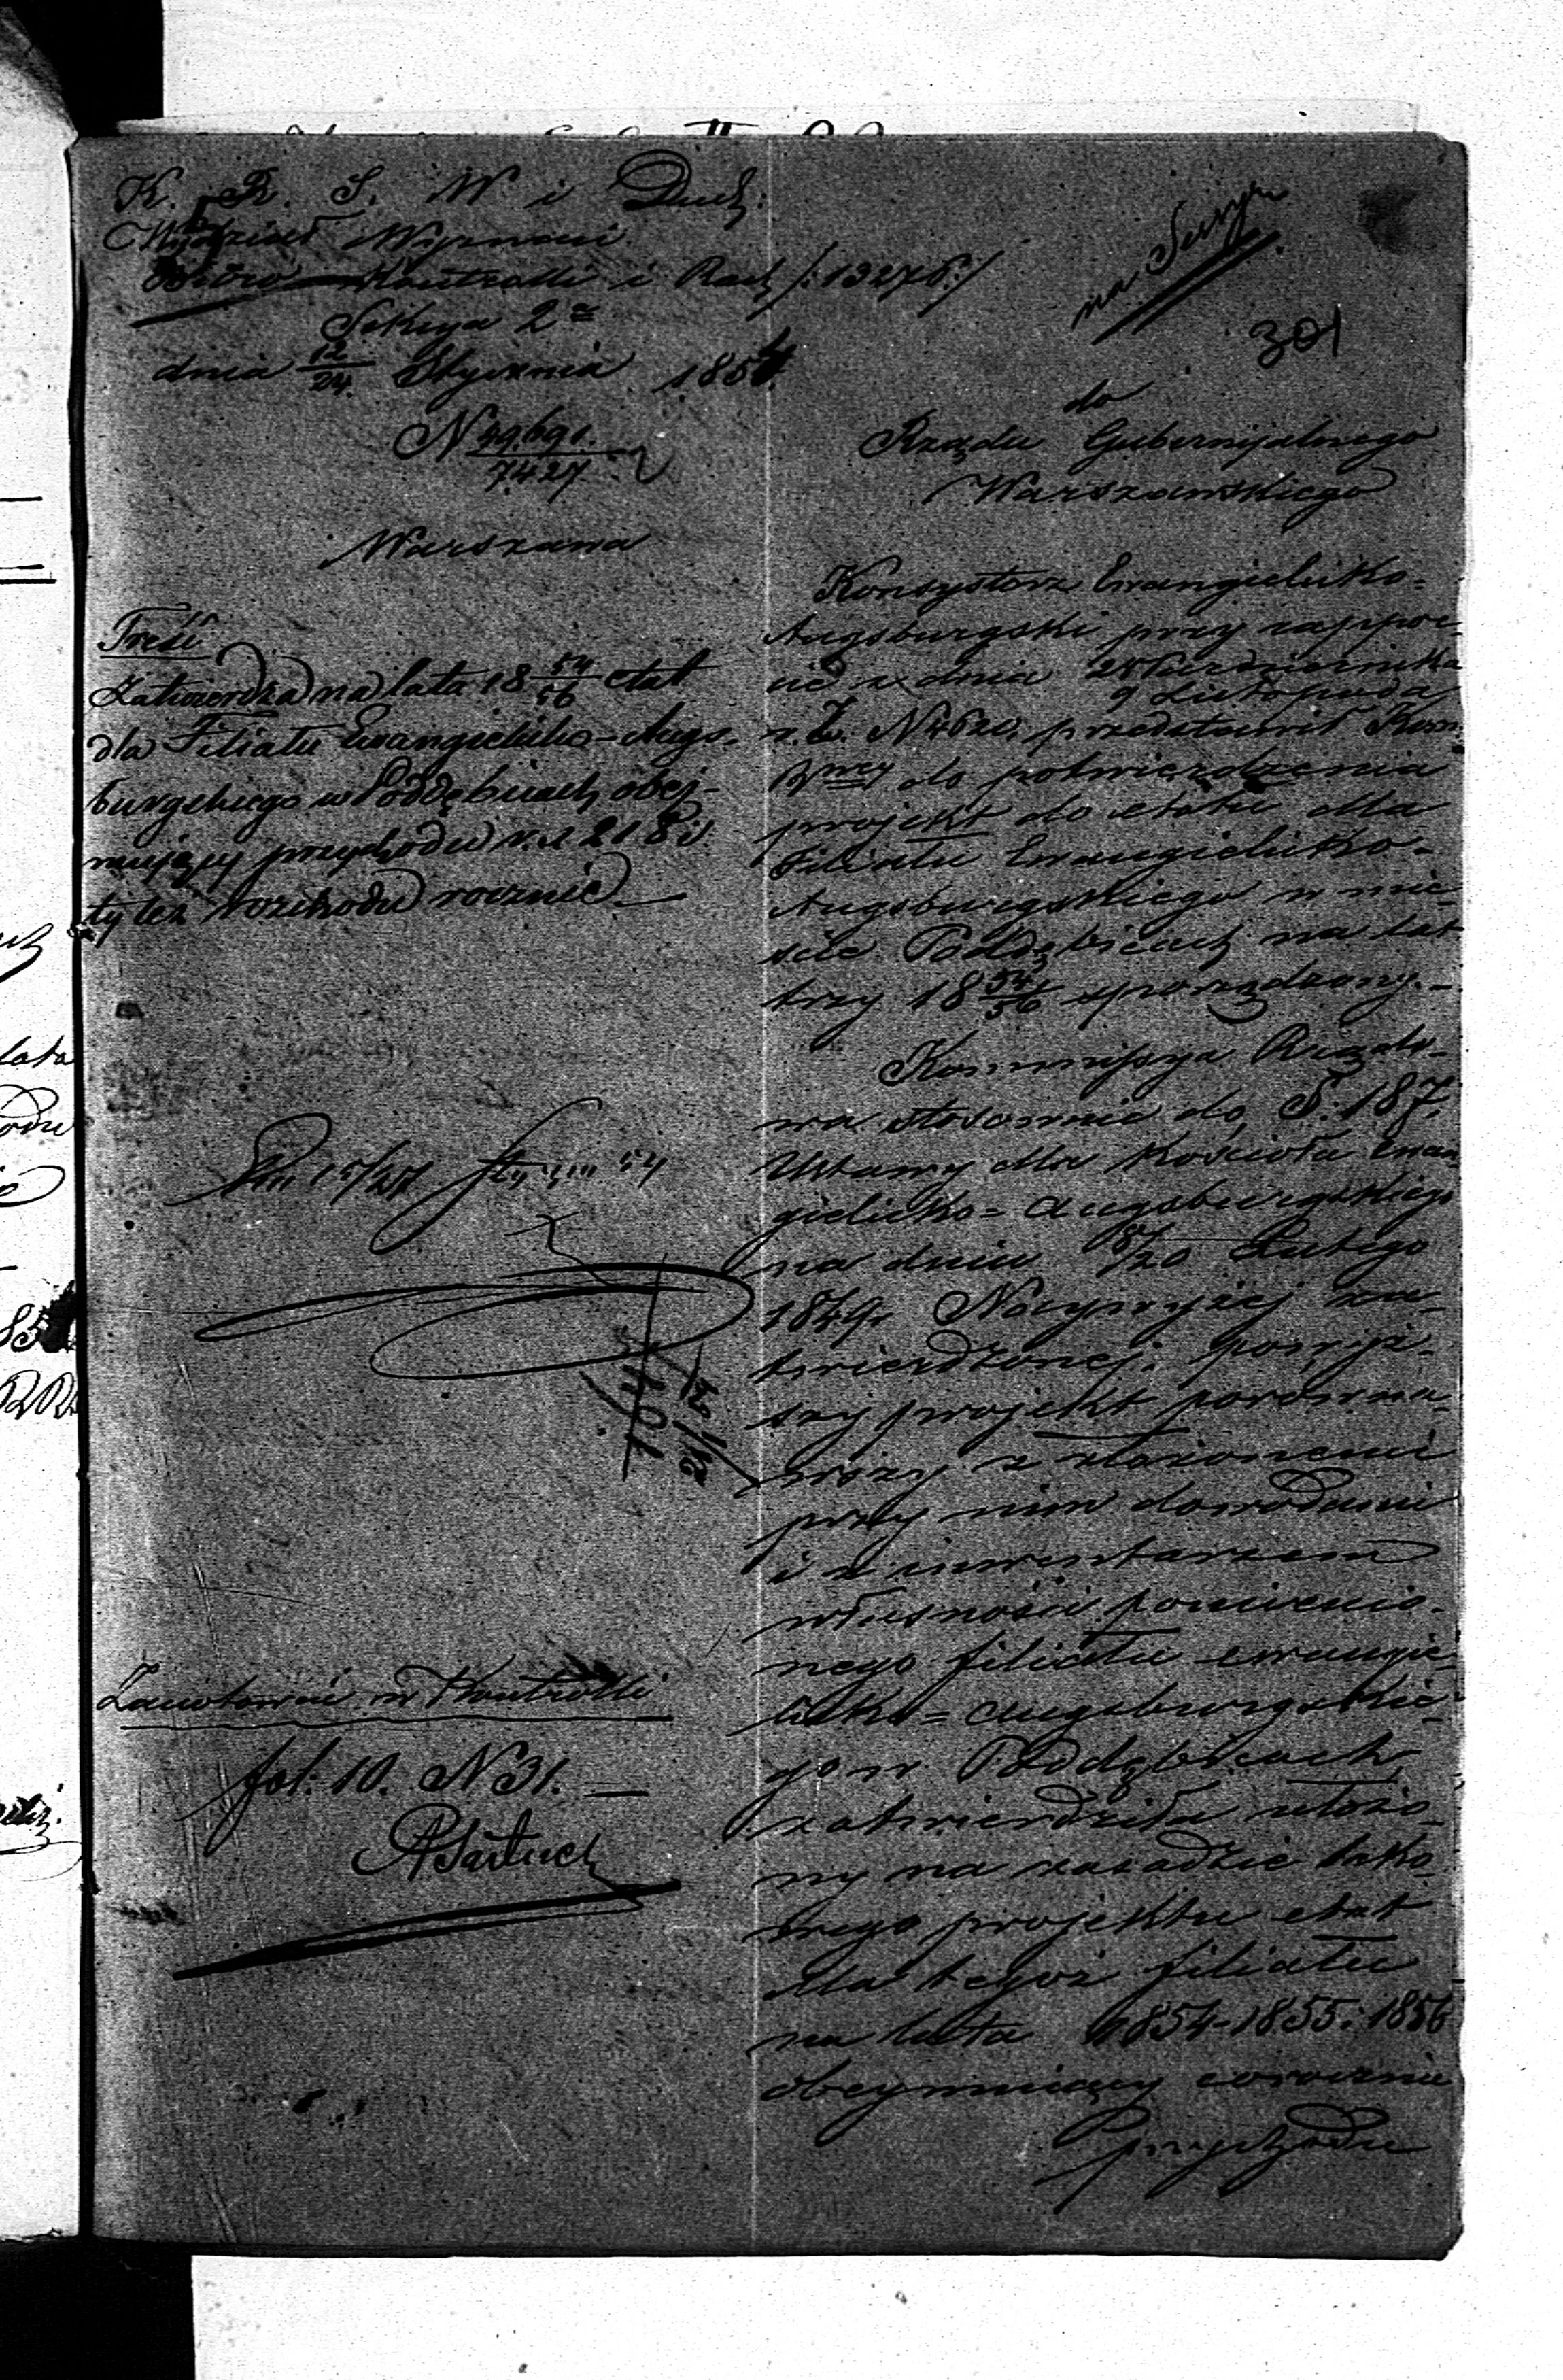 K. R. S. W i Duch:
Wydział Wyznań
Biuro Kontrolli i Rach /:13276:/
Sekcya 2ª
dnia 12/24 Stycznia 1854
N 49.691./7427
Warszawa
Treść
Zatwierdza na lata 18 54/56 etat
dla Filiału Ewangielicko-Augs-
burgskiego w Poddębicach obej-
mujący przychodu r.s. 218 i
tyleż rozchodu rocznie
15/27 54
Zanotowano w Kontrolli
fol: 10. N 31. —
301
do
Rządu Gubernijalnego
Warszawskiego
Konsystorz Ewangielicko-
Augsburgski przy rappor-
cie z dnia 28 Października
9 Listopada
r. z. N przedstawił Kom:
Rzwey do potwierdzenia
projekt do etatu dla
Filiału Ewangielicko-
Augsburgskiego w mie-
ście Poddębicach na lat
trzy 18 54/56 sporządzony.-
Kommissya Rządo-
wa stosownie do §. 187.
Ustawy dla Kościoła Ewan-
gielicko=Augsburgskiego
na dniu 8/20 Lutego
1849 r Najwyżej za-
twierdzonej, powyż-
szy projekt porówna-
wszy z złożonemi
przy nim dowodami
i z inwentarzem
własności pomienio-
nego filiału ewangie-
licko=augsburgskie-
go w Poddębicach
zatwierdziła ułożo-
ny na zasadzie tako-
wego projektu etat
dla tegoż filiału
na lata 1854-1855:1856
obeymuiący corocznie
Przychodu